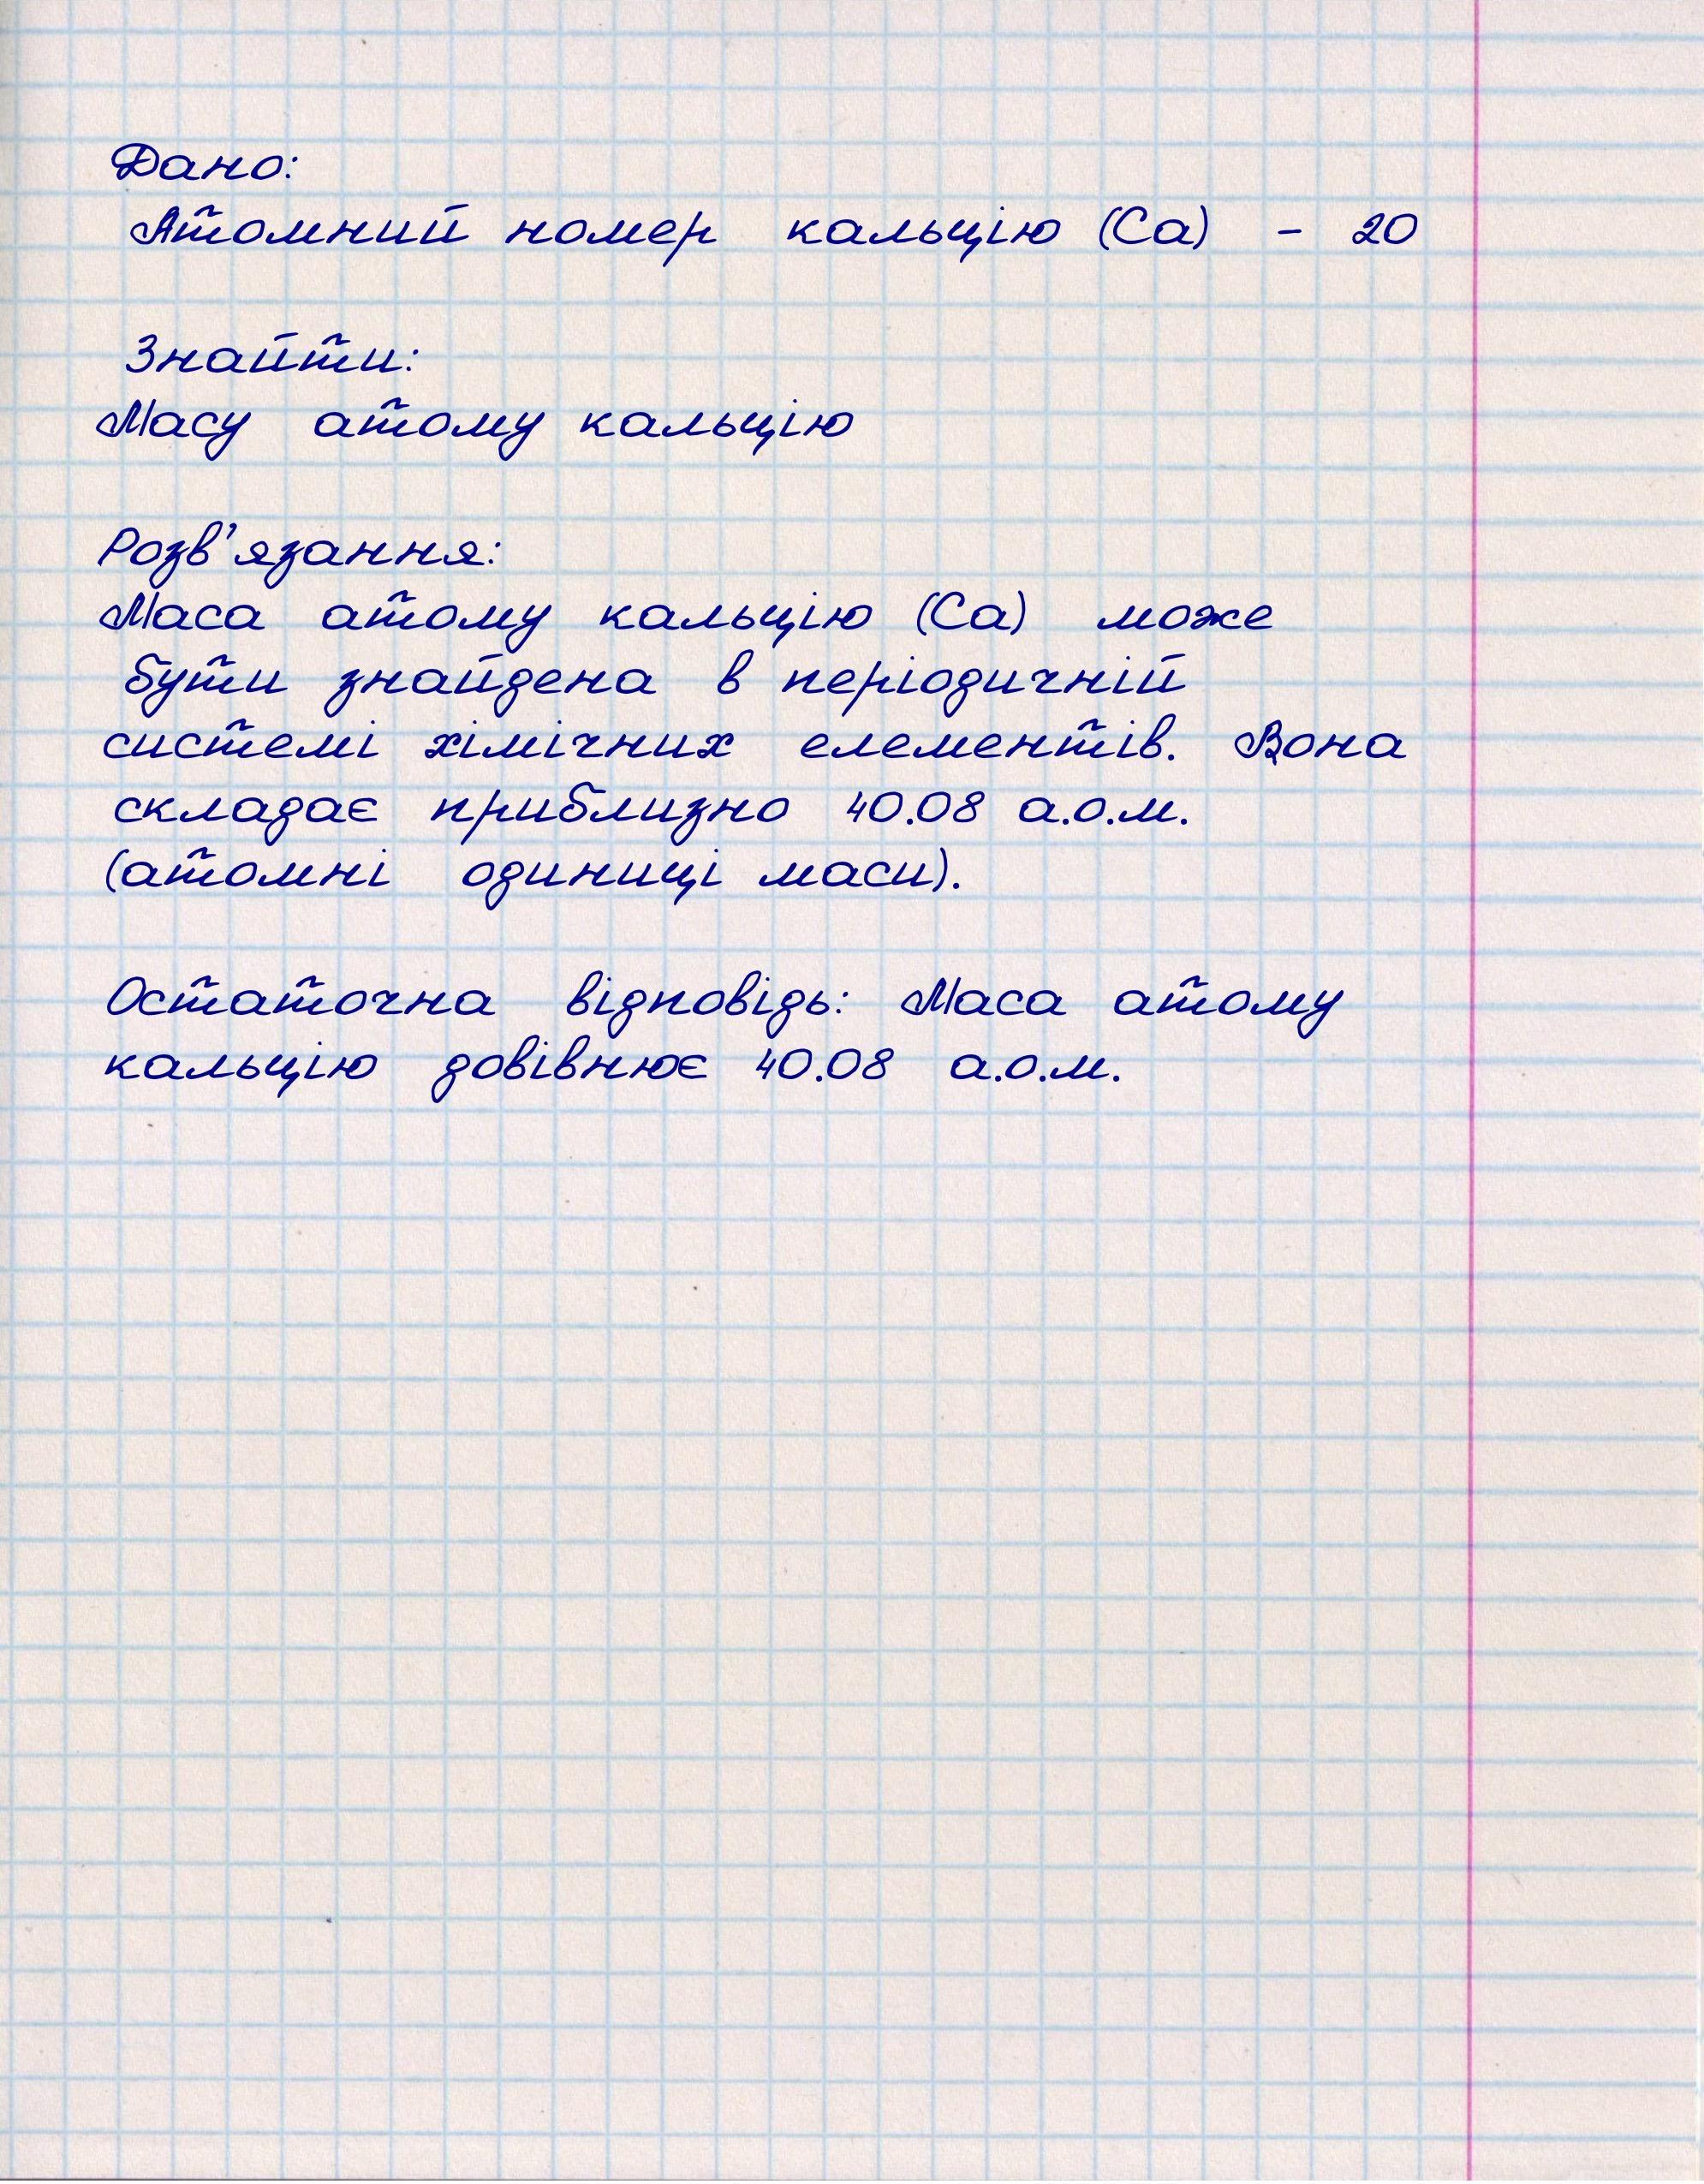 Дано:
Атомний номер кальцію (Ca) - 20
Знайти:
Масу атому кальцію
Розв'язання:
Маса атому кальцію (Ca) може
бути знайдена в періодичній
системі хімічних елементів. Вона
складає приблизно 40.08 а.о.м.
(атомні одиниці маси).
Остаточна відповідь: Маса атому
кальцію довівнює 40.08 а.о.м.